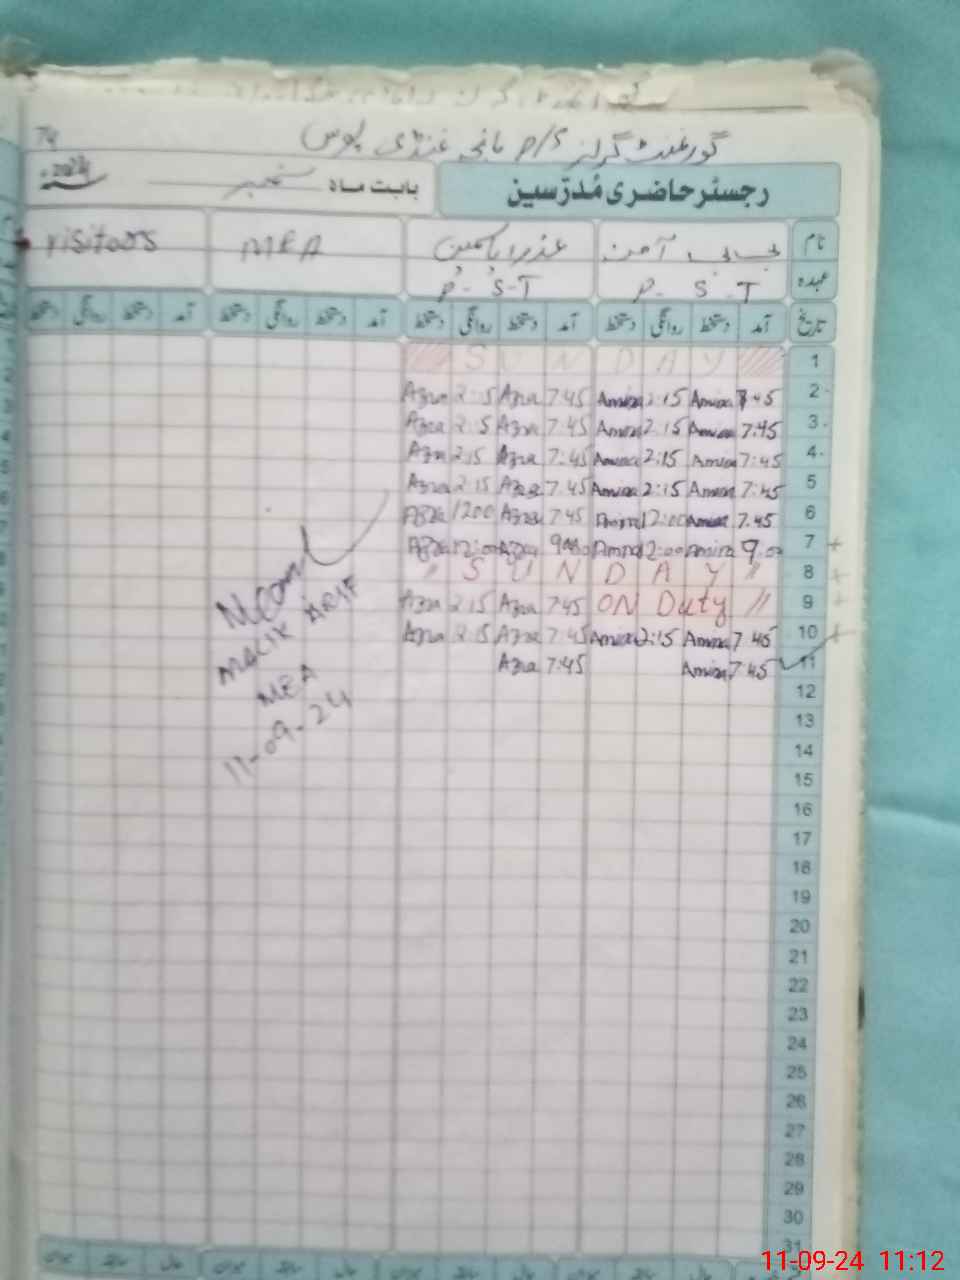 74
گورنمنٹ گرلز P/S مانجہ غنڈی پوس
رجسٹر حاضری مُدرّسین بابت ماہ ستمبر 2024ء
نام بی بی آمنہ عذرا یاسمین MEA visitors
عہدہ P- S -T P- S-T
تاریخ آمد دستخط روانگی دستخط آمد دستخط روانگی دستخط آمد دستخط روانگی دستخط آمد دستخط روانگی دستخط
SUNDAY 1
Azra 2:15 Azra 7:45 Amina 2:15 Amina 7:45 2
Azra 2:15 Azra 7:45 Amina 2:15 Amina 7:45 3
Azra 2:15 Azra 7:45 Amina 2:15 Amina 7:45 4
Azra 2:15 Azra 7:45 Amina 2:15 Amina 7:45 5
Azra 1200 Azra 7:45 Amina 12:00 Amina 7.45 6
Azra 12:00 Azra 9:00 Amina 12:00 Amina 9.00 7
" SUNDAY " 8
Azra 2:15 Azra 7:45 ON Duty // 9
Azra 2:15 Azra 7:45 Amina 2:15 Amina 7:45 10
Azra 7:45 Amina 7:45 11
MALIK ARIF
MEA
11-09-24
12
13
14
15
16
17
18
19
20
21
22
23
24
25
26
27
28
29
30
31
11-09-24 11:12